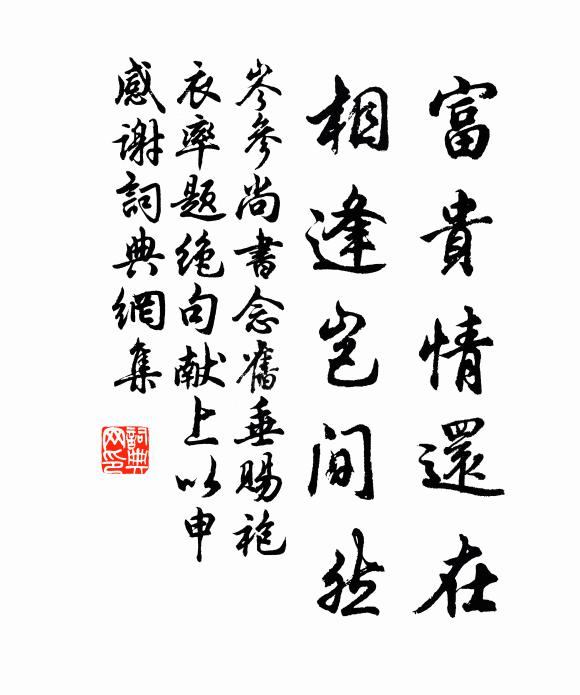 富貴情還在
相逢豈間然
岑參尚書念舊垂賜袍
衣率題絶句献上以申
感謝詞典網集
詞典
网印